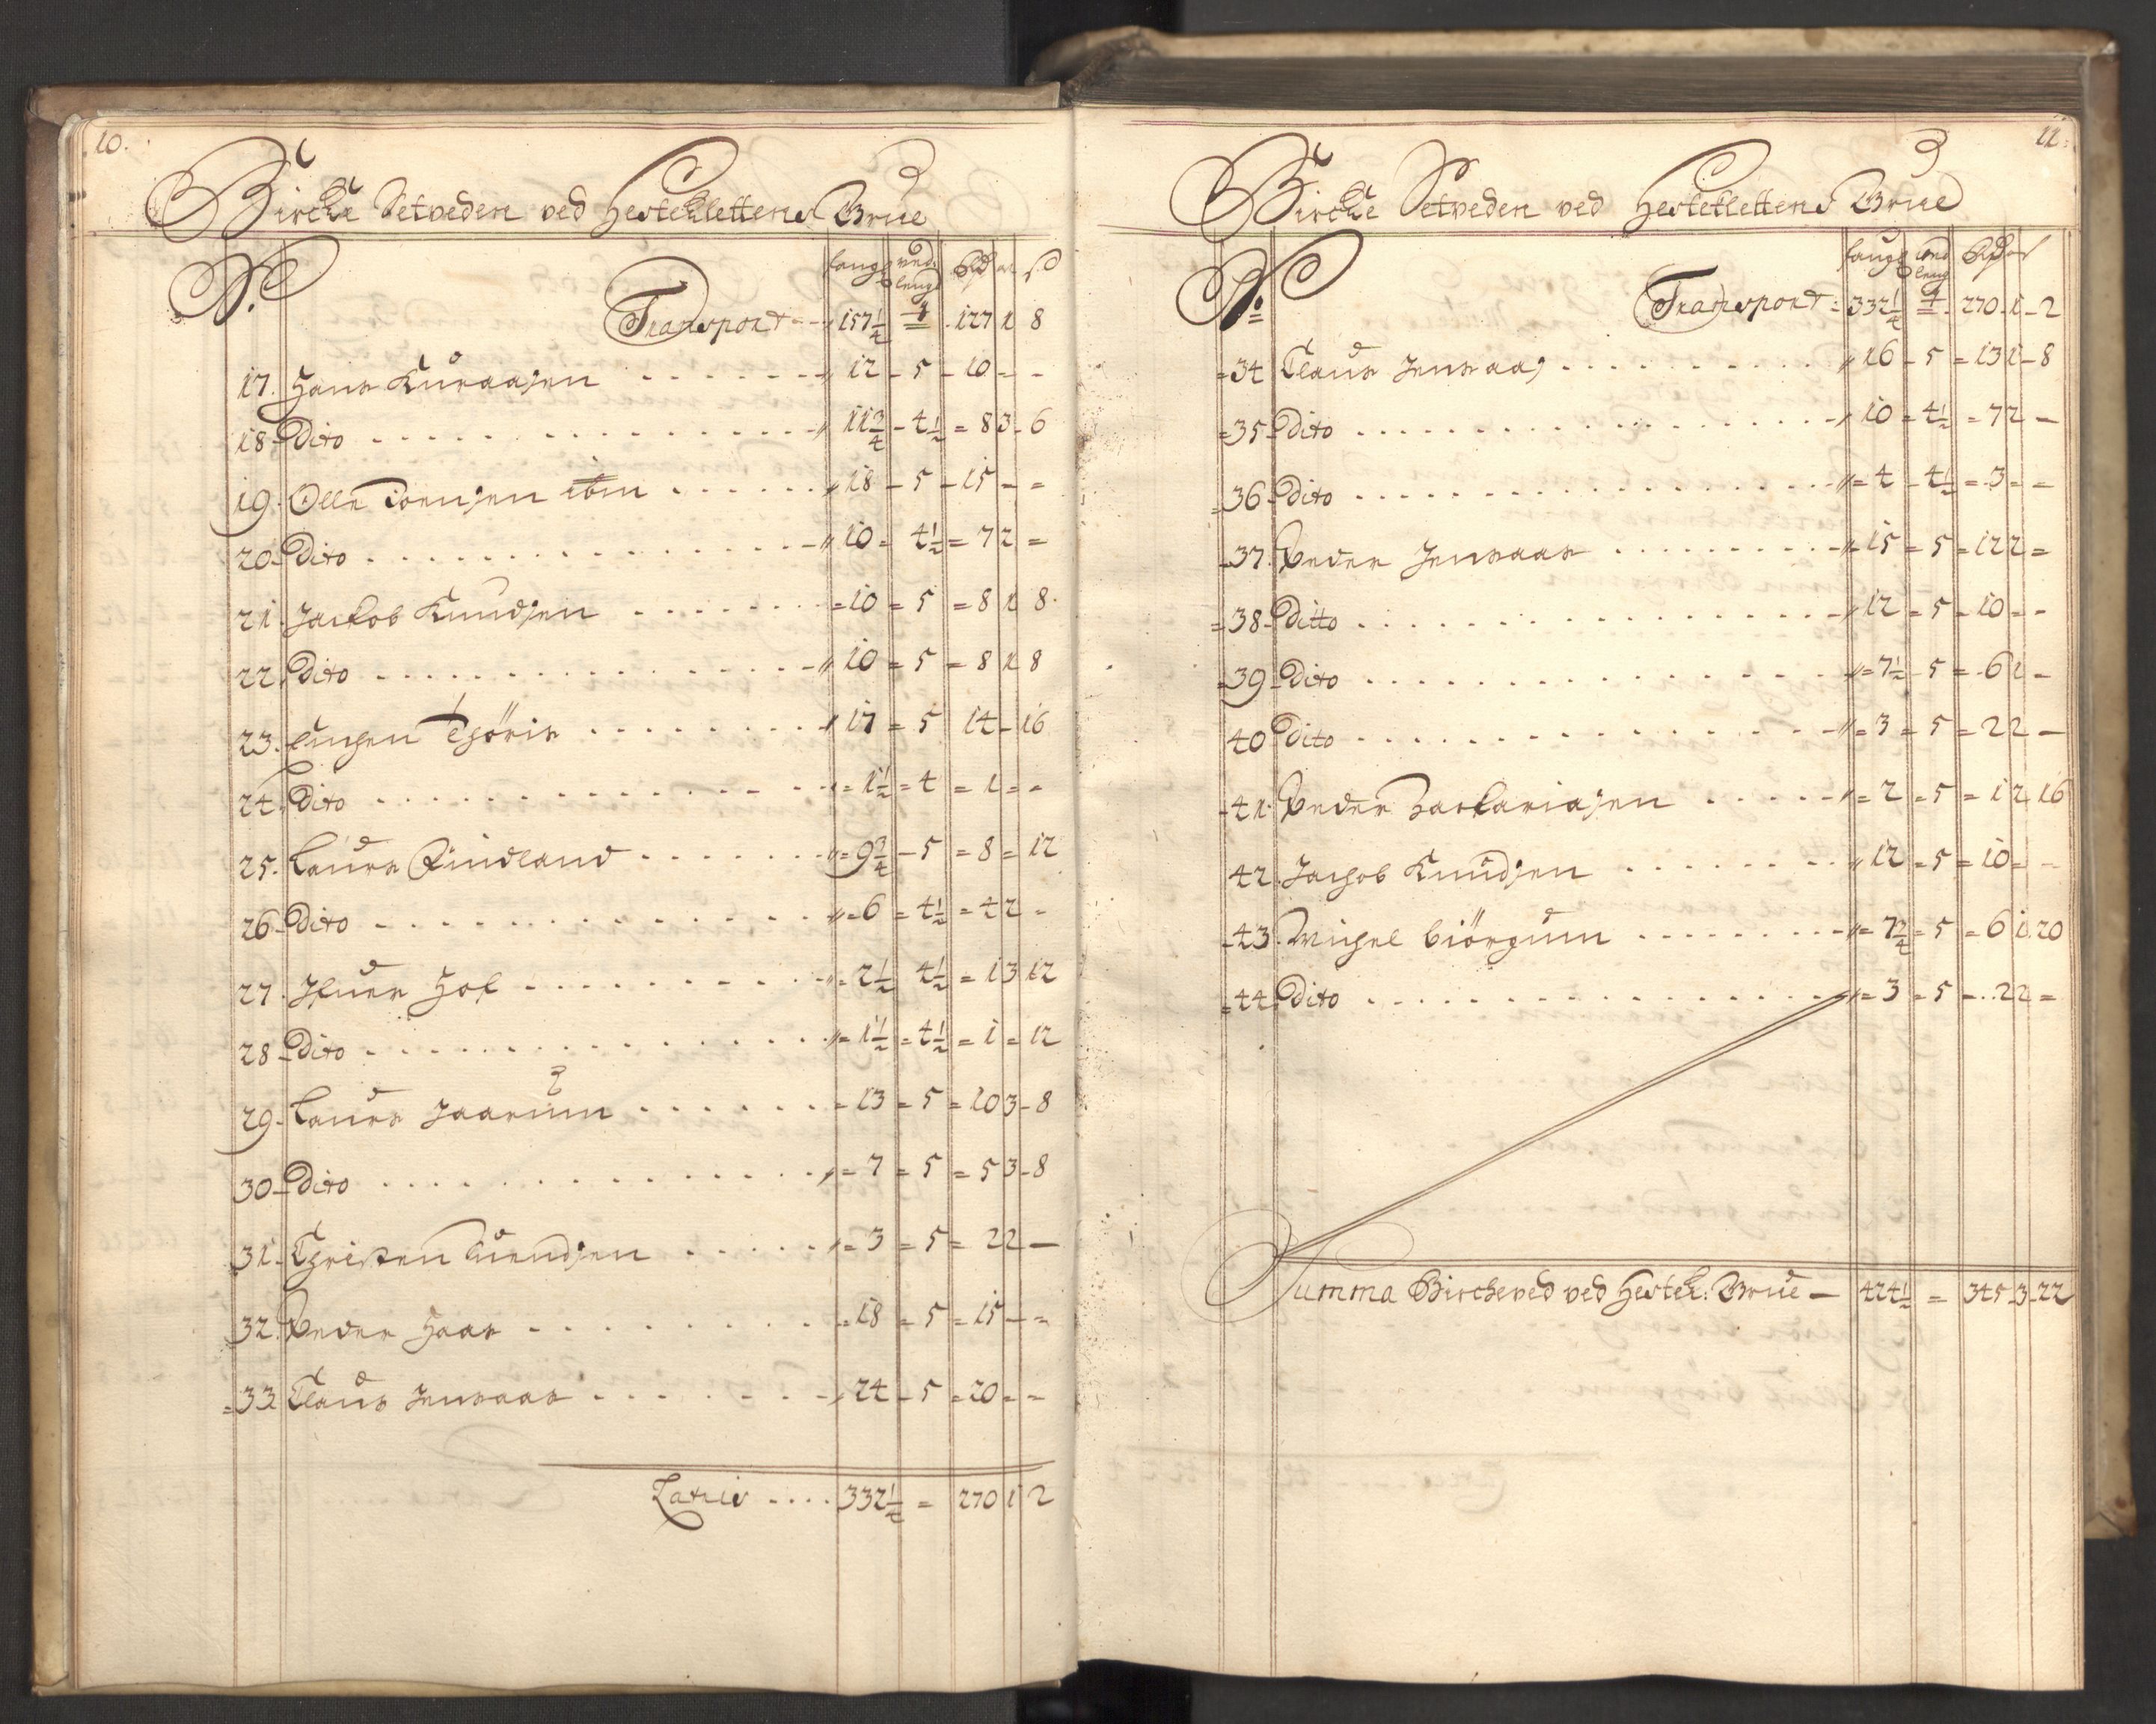 10.
Bircke Setveden ved Hesteklettens Brue
No. faug ved lengd Rd ort s
Transport - - 157 1/4 4 127 1 8
17. Hans Kuraasen 12 - 5 - 10 - -
18 - Dito 11 3/4 - 4 1/2 = 8 3 - 6
19. Olle Toensen ibm 18 - 5 - 15 - =
20 - Dito 10 = 4 1/2 = 7 2 =
21. Jackob Knudsen = 10 = 5 = 8 1 8
22. Dito 10 = 5 = 8 1 8
23. Tschöris 17 = 5 14 - 16
24. Dito = 1 1/2 = 4 = 1 = =
25. Laurs Rindland = 9 3/4 - 5 = 8 = 12
26 - Dito = 6 = 4 1/2 = 4 2 -
27. Ifuer Hof = 2 1/2 4 1/2 = 1 3 12
28 - Dito = 1 1/2 = 4 1/2 = 1 = 12
29. Laurs Jaarum = 13 = 5 = 10 3 - 8
30 - Dito = 7 = 5 = 5 3 - 8
31. Christen Suendsen = 3 = 5 = 2 2 -
32. Peder Haar = 18 = 5 = 15 - =
= 33. Claus Jensaas 24 - 5 = 20 = =
Latris .... 332 1/4 = 270 1 2
11.
Bircke Setveden ved Hesteklettens Brue
No: faug ved leng Rd ort
Transport: 332 1/4 4 270 - 1 - 2
= 34 Claus Jensaas 16 - 5 = 13 1 - 8
= 35 - Dito 10 = 4 1/2 = 7 2 -
= 36 - Dito = 4 - 4 1/2 = 3 = -
- 37. Peder Jensaas = 15 = 5 = 12 2 =
= 38 - Ditto 12 = 5 - 10 = -
- 39 - Dito = 7 1/2 - 5 = 6 1 -
40 Dito = 3 = 5 = 2 2 -
- 41. Peder Zackariasen = 2 = 5 = 1 2 16
42. Jachob Knudsen 12 = 5 = 10 = -
- 43. Michel Biörgum = 7 3/4 = 5 = 6 1 20
= 44 - Dito = 3 = 5 = 2 2 =
Summa Bircheved ved Hestek: Brue - 424 1/2 = 345 - 3 - 22